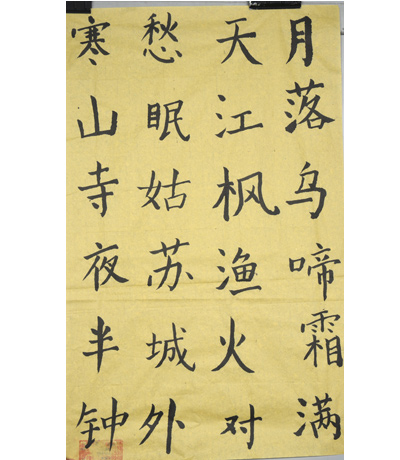 月落乌啼霜满
天江枫渔火对
愁眠姑苏城外
寒山寺夜半钟